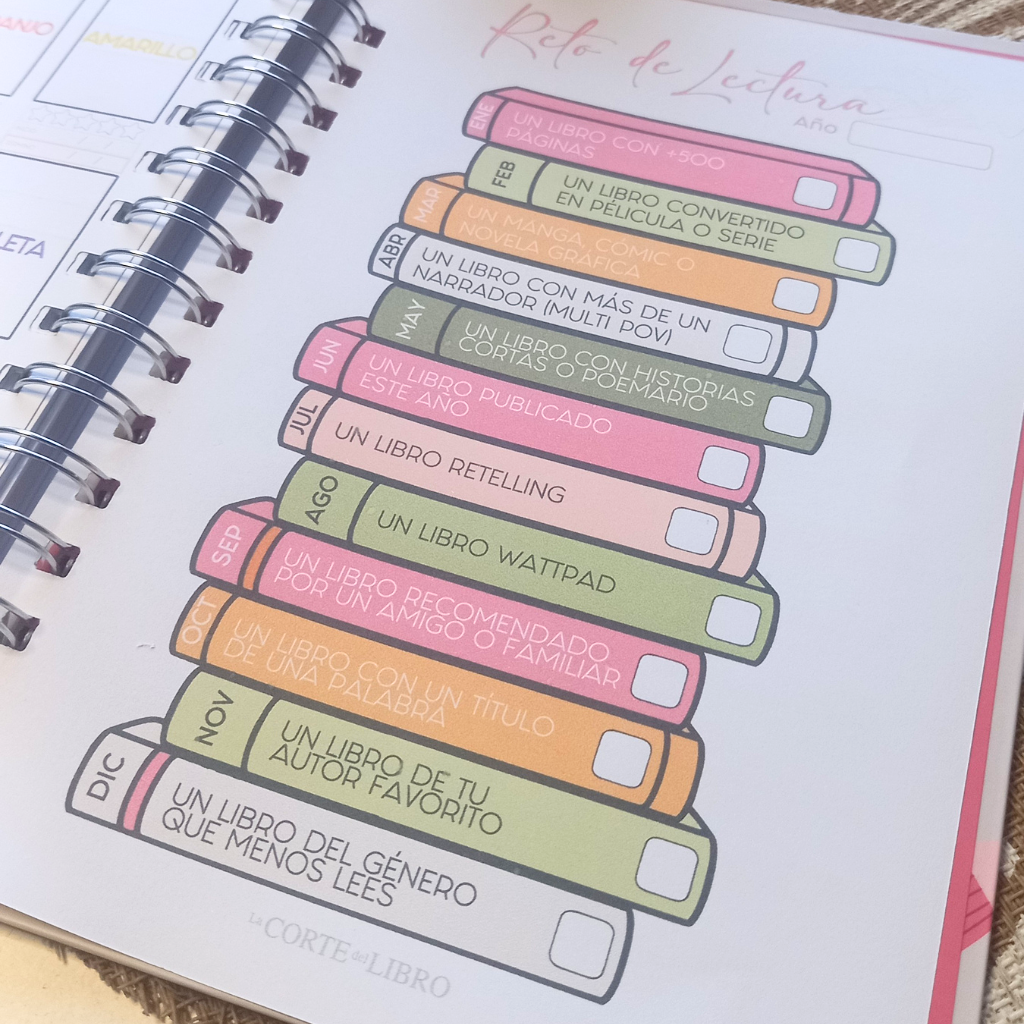 AMARILLO
Reto de Lectura
Año
ENE
UN LIBRO CON +500
PÁGINAS
FEB
UN LIBRO CONVERTIDO
EN PÉLICULA O SERIE
MAR
UN MANGA, CÓMIC O
NOVELA GRÁFICA
ABR
UN LIBRO CON MÁS DE UN
NARRADOR (MULTI POV)
MAY
UN LIBRO CON HISTORIAS
CORTAS O POEMARIO
JUN
UN LIBRO PUBLICADO
ESTE AÑO
JUL
UN LIBRO RETELLING
AGO
UN LIBRO WATTPAD
SEP
UN LIBRO RECOMENDADO
POR UN AMIGO O FAMILIAR
OCT
UN LIBRO CON UN TÍTULO
DE UNA PALABRA
NOV
UN LIBRO DE TU
AUTOR FAVORITO
DIC
UN LIBRO DEL GÉNERO
QUE MENOS LEES
La CORTE del LIBRO